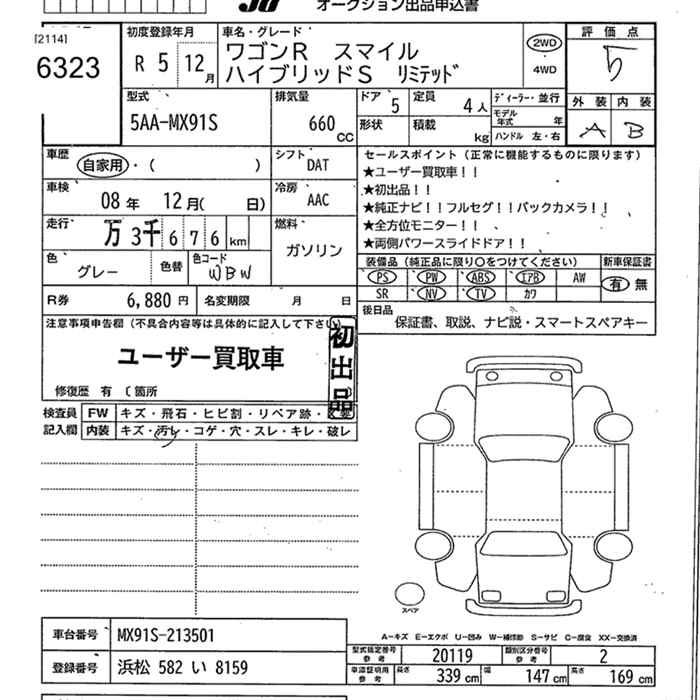 オークション出品申込書
[2114]
6323
初度登録年月
R 5 12 月
車名・グレード
ワゴンR スマイル
ハイブリッドS リミテッド
2WD
4WD
評価点
5
外装 内装
A B
型式
5AA-MX91S
排気量
660 CC
ドア 5
定員 4 人
形状
積載 kg
ディーラー・並行
モデル年式 年
ハンドル 左・右
車歴
自家用・( )
シフト
DAT
車検
08 年 12 月( 日)
冷房
AAC
走行
万 3千 6 7 6 km
燃料
ガソリン
色
グレー
色替
色コード
WBW
R券 6,880 円
名変期限 月 日
セールスポイント(正常に機能するものに限ります)
★ユーザー買取車!!
★初出品!!
★純正ナビ!!フルセグ!!バックカメラ!!
★全方位モニター!!
★両側パワースライドドア!!
装備品(純正品に限り○をつけてください)
新車保証書
PS PW ABS エアB AW
SR NV TV カワ
有 無
後日品
保証書、取説、ナビ説・スマートスペアキー
注意事項申告欄(不具合内容等は具体的に記入して下さい)
ユーザー買取車
初出品
修復歴 有 〔箇所
検査員 FW キズ・飛石・ヒビ割・リペア跡・
記入欄 内装 キズ・汚レ・コゲ・穴・スレ・キレ・破レ
スペア
A-キズ E-エクボ U-凹み W-補修跡 S-サビ C-腐食 XX-交換済
車台番号 MX91S-213501
登録番号 浜松 582 い 8159
型式指定番号 参考 20119
類別区分番号 参考 2
車庫証明用 参考
長さ 339 cm
幅 147 cm
高さ 169 cm